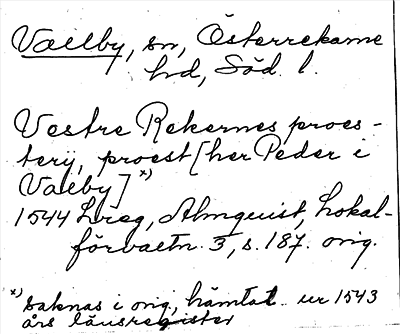 Vallby, sn, Österrekarne
hd, Söd. l.
Vestre Rekernes proes-
terij, proest [her Peder i
Valby] *)
1544 Lreg, Almquist, Lokal-
förvaltn. 3, s. 187. orig.
*) saknas i orig, hämtat ur 1543
års länsregister